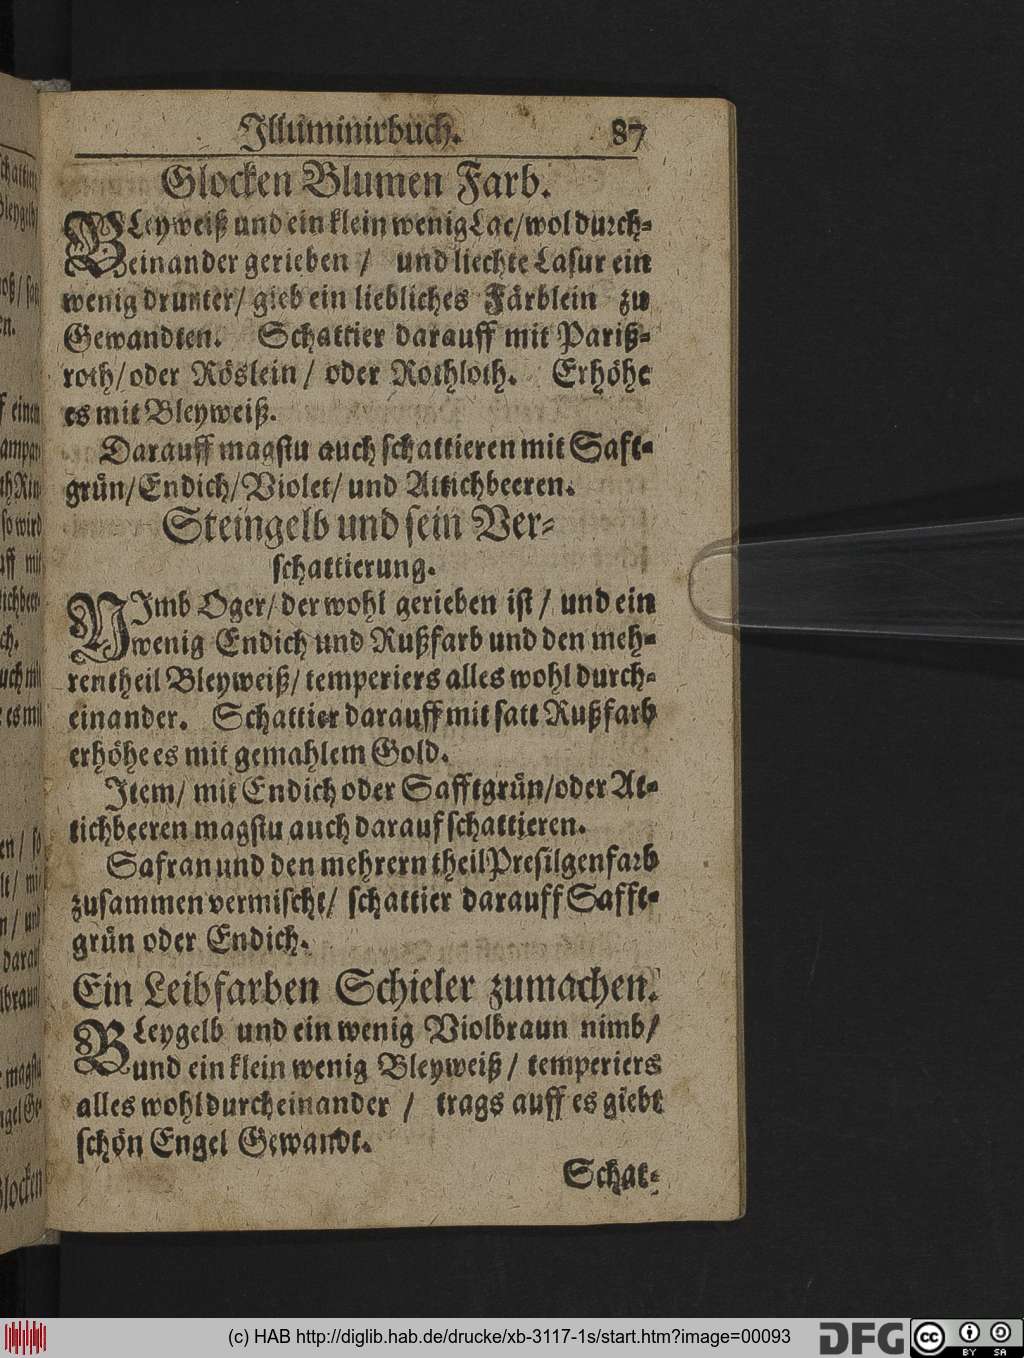 Illuminirbuch. 87
Glocken Blumen Farb.
BLeyweiß und ein klein wenig Lac/ wol durch-
einander gerieben / und liechte Lasur ein
wenig drunter/ gieb ein liebliches Färblein zu
Gewandten. Schattier darauff mit Pariß-
roth/ oder Röslein / oder Rothloth. Erhöhe
es mit Bleyweiß.
Darauff magstu auch schattieren mit Saft-
grün/ Endich/ Violet/ und Attichbeeren.
Steingelb und sein Ver-
schattierung.
NImb Oger/ der wohl gerieben ist / und ein
wenig Endich und Rußfarb und den meh-
rentheil Bleyweiß/ temperiers alles wohl durch-
einander. Schattier darauff mit satt Rußfarb
erhöhe es mit gemahlem Gold.
Item/ mit Endich oder Safftgrün/ oder At-
tichbeeren magstu auch darauf schattieren.
Safran und den mehrern theil Presilgenfarb
zusammen vermischt/ schattier darauff Safft-
grün oder Endich.
Ein Leibfarben Schieler zumachen.
BLeygelb und ein wenig Violbraun nimb/
und ein klein wenig Bleyweiß / temperiers
alles wohl durcheinander / trags auff es giebt
schön Engel Gewandt.
Schat-
(c) HAB http://diglib.hab.de/drucke/xb-3117-1s/start.htm?image=00093
DFG
cc BY SA